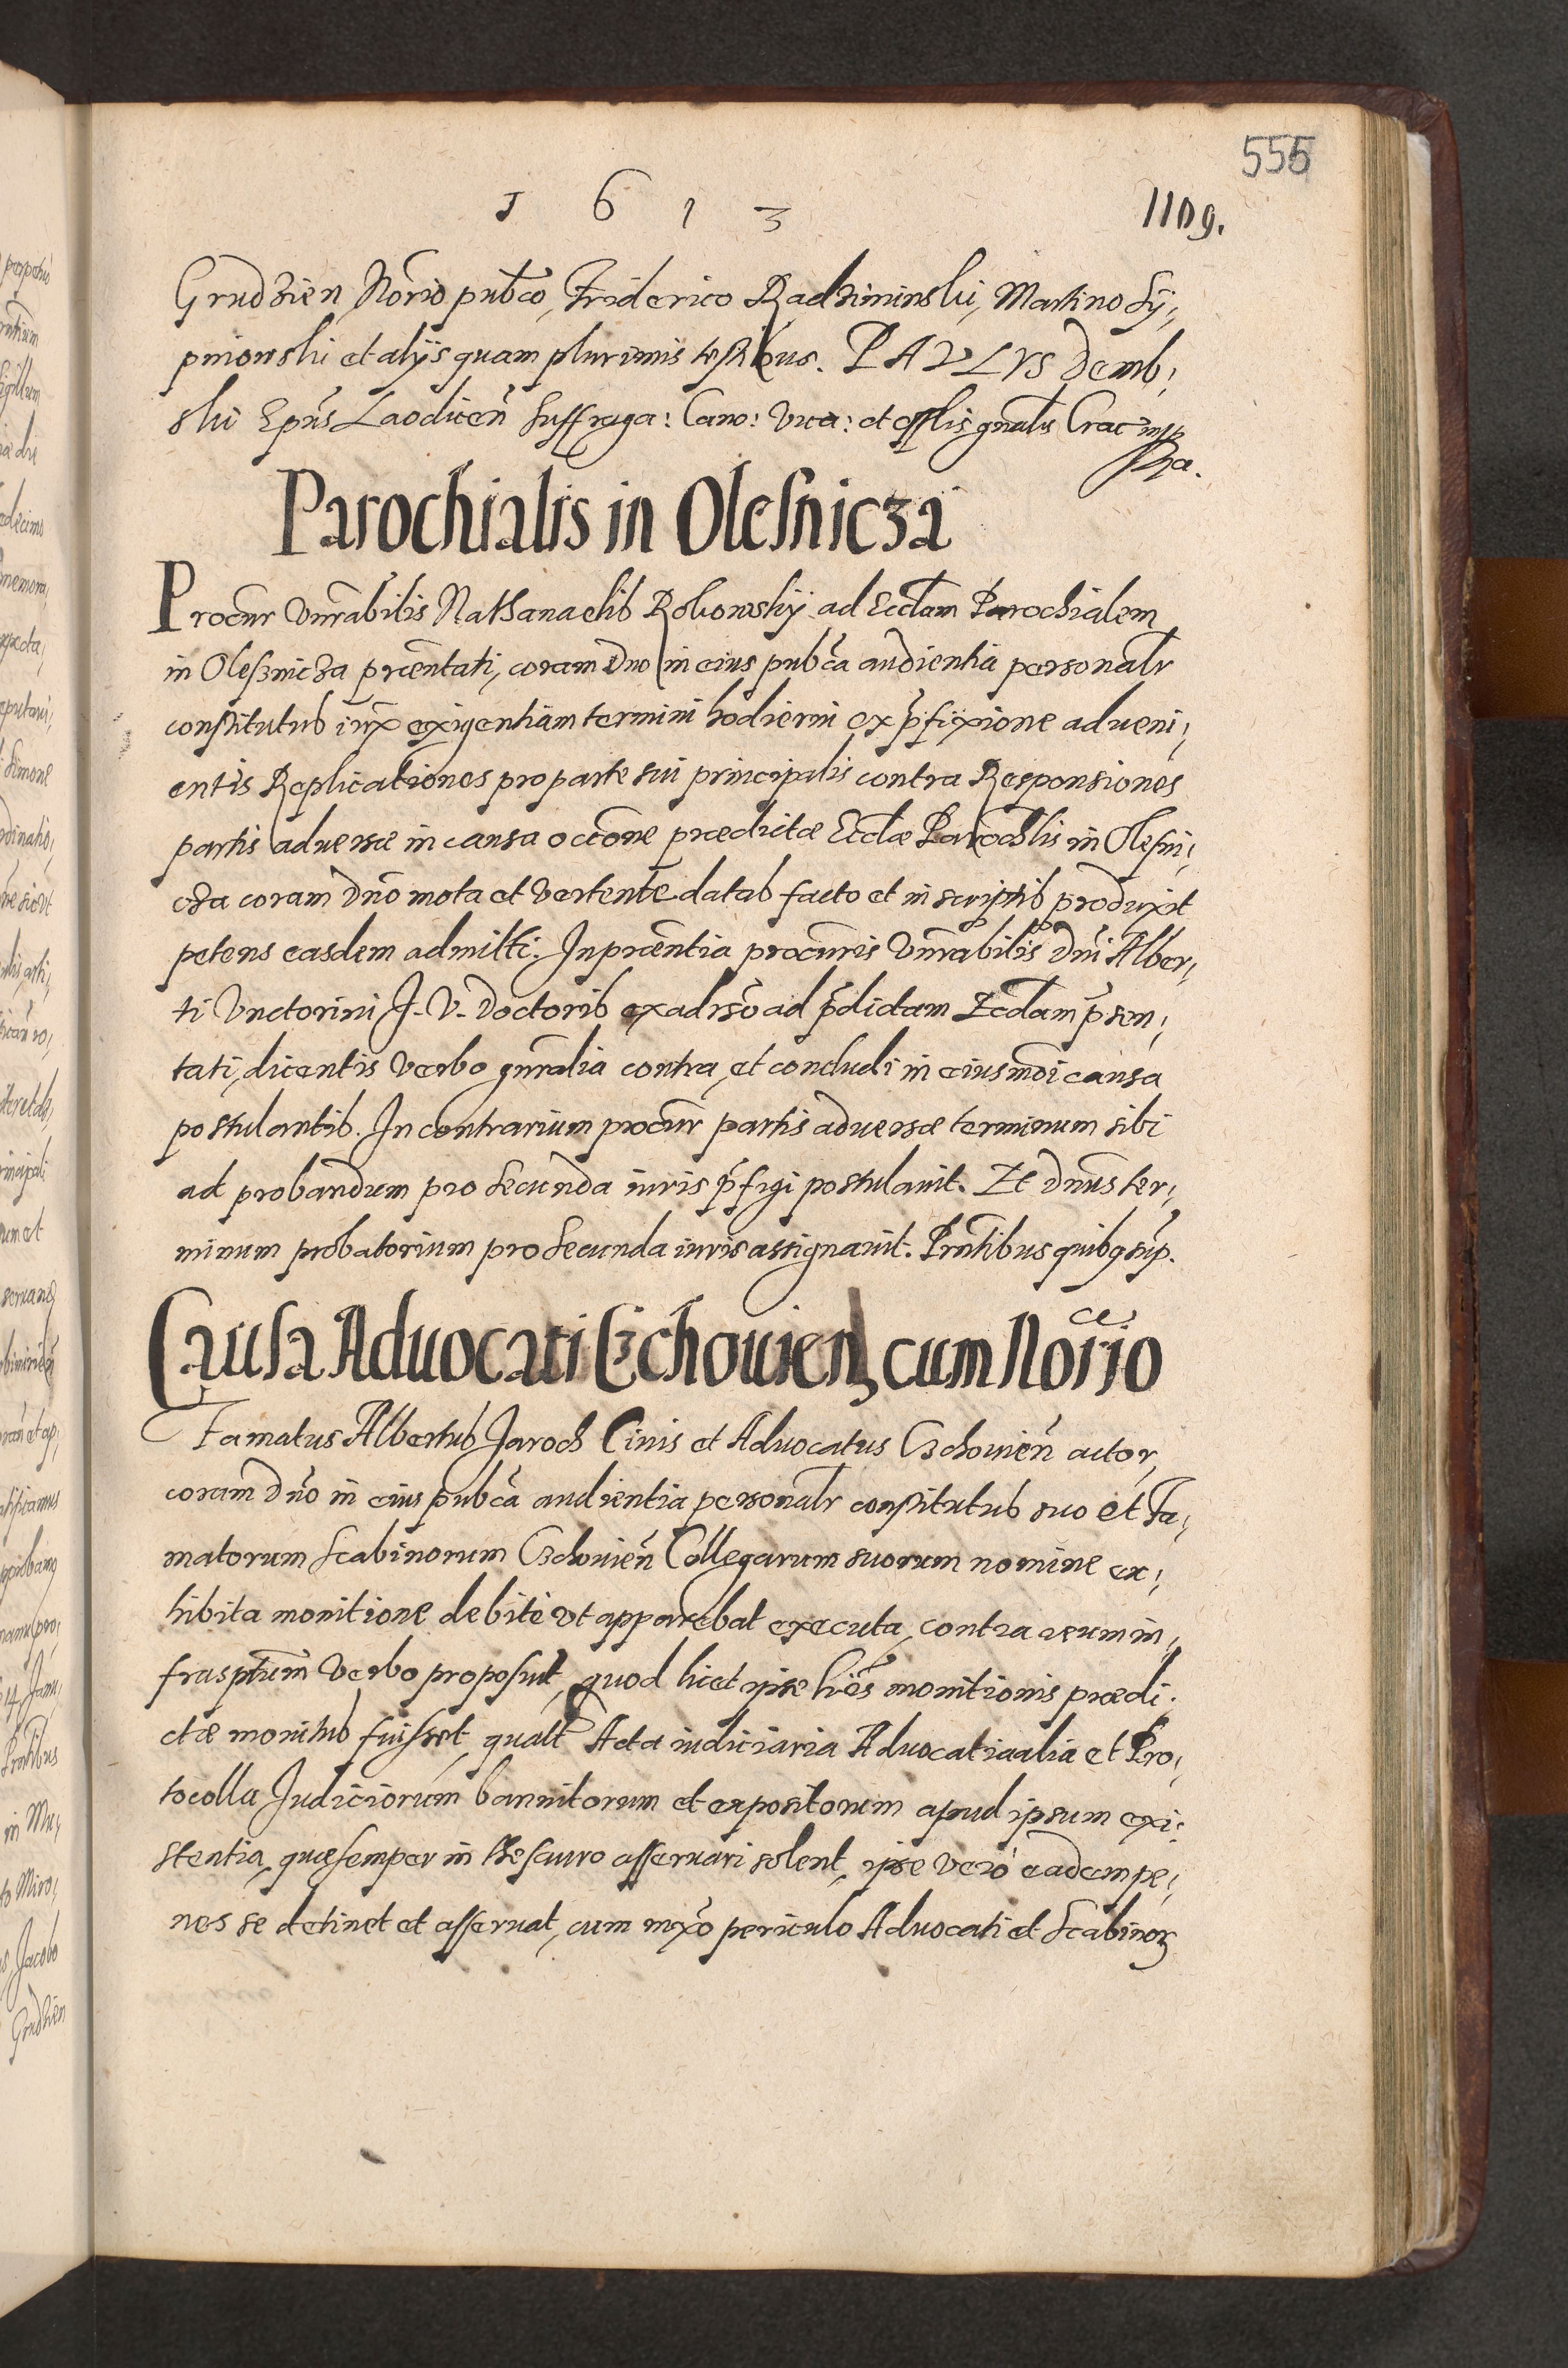 555
1 6 1 3
1109.
Grudzien Norio pubco, Friderico Radziminski, Martino Sÿ,
pniowski et alijs quam plurimis testibus. PAVLVS Demb,
ski Epus Laodicen Suffraga: Cano: Vica: et offlis gnalis Crac mp
Parochialis in Olesnicza
Procur Vnrabilis Nathanaelis Rokowskÿ ad Ecclam Parochialem
in Olesznicza praentati, coram Dno in eius pubca audientia personalr
constitutus iux exigentiam termini hodierni ex pfixione adueni,
entis Replicationes pro parte sui principalis contra Responsiones
partis aduersae in causa occone praedictae Ecclae Parochlis in Olesni,
cza coram Dno mota et vertente datas facto et in scriptis produxit
petens easdem admitti. In praentia procuris Vnrabilis Dni Alber,
ti Vnctorini J. V. Doctoris ex adrso ad pdictam Ecclam psen,
tati, dicentis verbo gnralia contra, et concludi in eiusmoi causa
postulantis. In contrarium procur partis aduersae terminum sibi
ad probandum pro secunda iuris pfigi postulauit. Et Dnus ter,
minum probatorium pro secunda iuris assignauit. Prntibus quibus sup.
Causa Aduocati Czchouien cum Norio
Famatus Albertus Jaroch Ciuis et Aduocatus Czchouien actor,
coram Dno in eius pubca audientia personalr constitutus suo et Fa,
matorum Scabinorum Czchouien Collegarum suorum nomine ex,
hibita monitione debite vt apparebat executa, contra reum in,
frasptum verbo proposuit, quod licet ipse lries monitionis praedi,
ctae monitus fuisset, qualr Acta iudiciaria Aduocatiaalia et Pro,
tocolla Judiciorum bannitorum et expositorum apud ipsum exi,
stentia, quae semper in thesauro asseruari solent, ipse vero eadem pe,
nes se detinet et asseruat, cum mxo periculo Aduocati et Scabinor